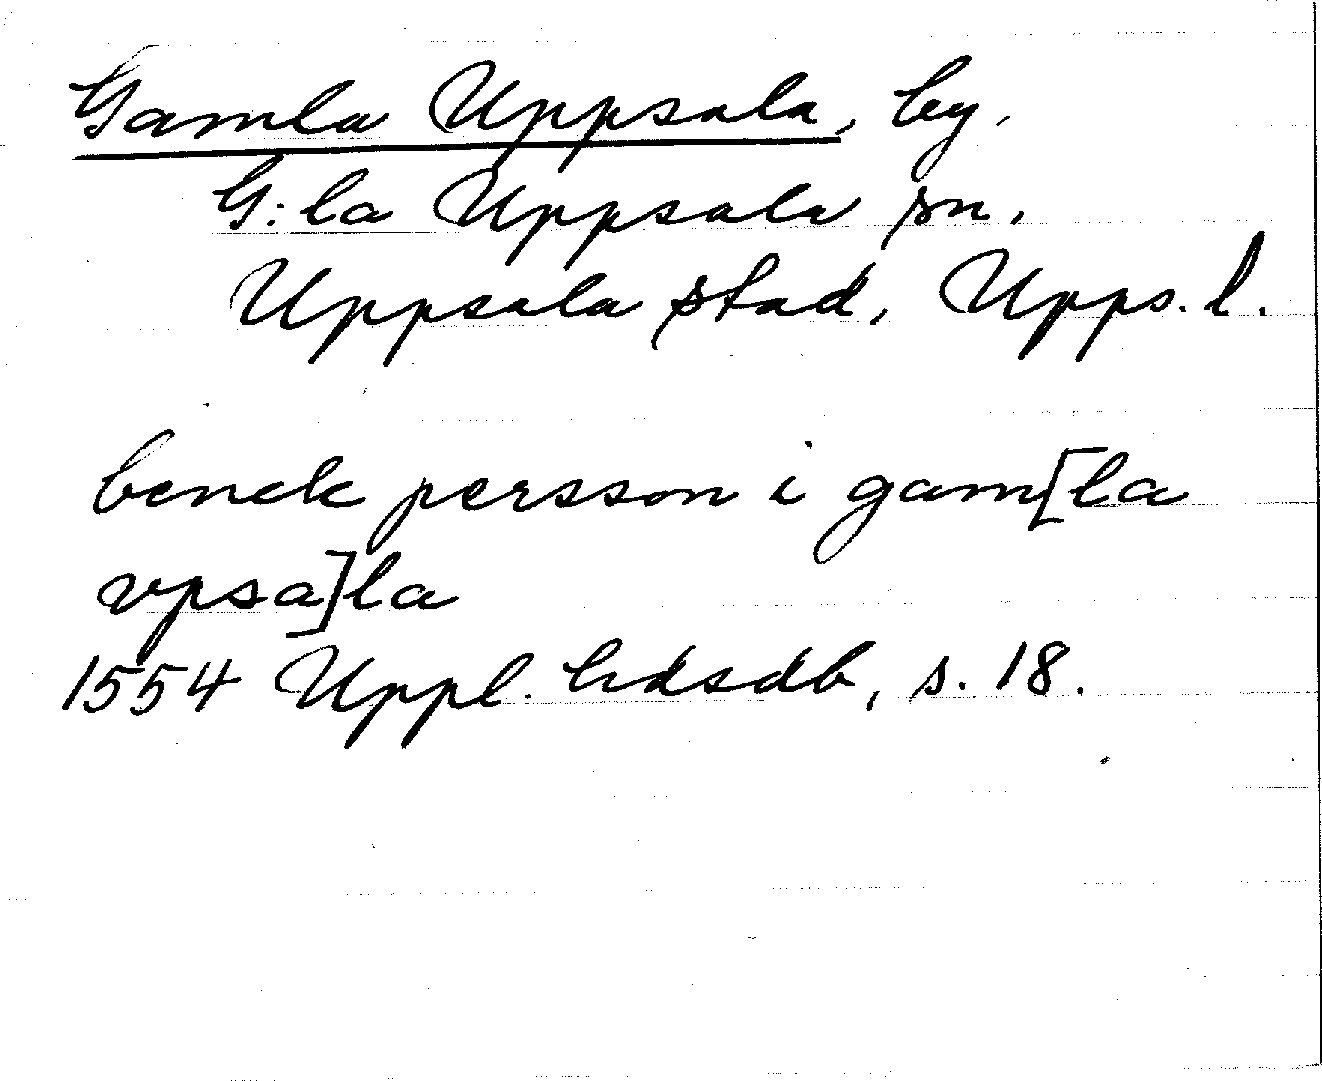 Gamla Uppsala, by.
G:la Uppsala sn.
Uppsala stad, Upps. l.
benck persson i gam[la
vpsa]la
1554 Uppl. hdsdb, s. 18.